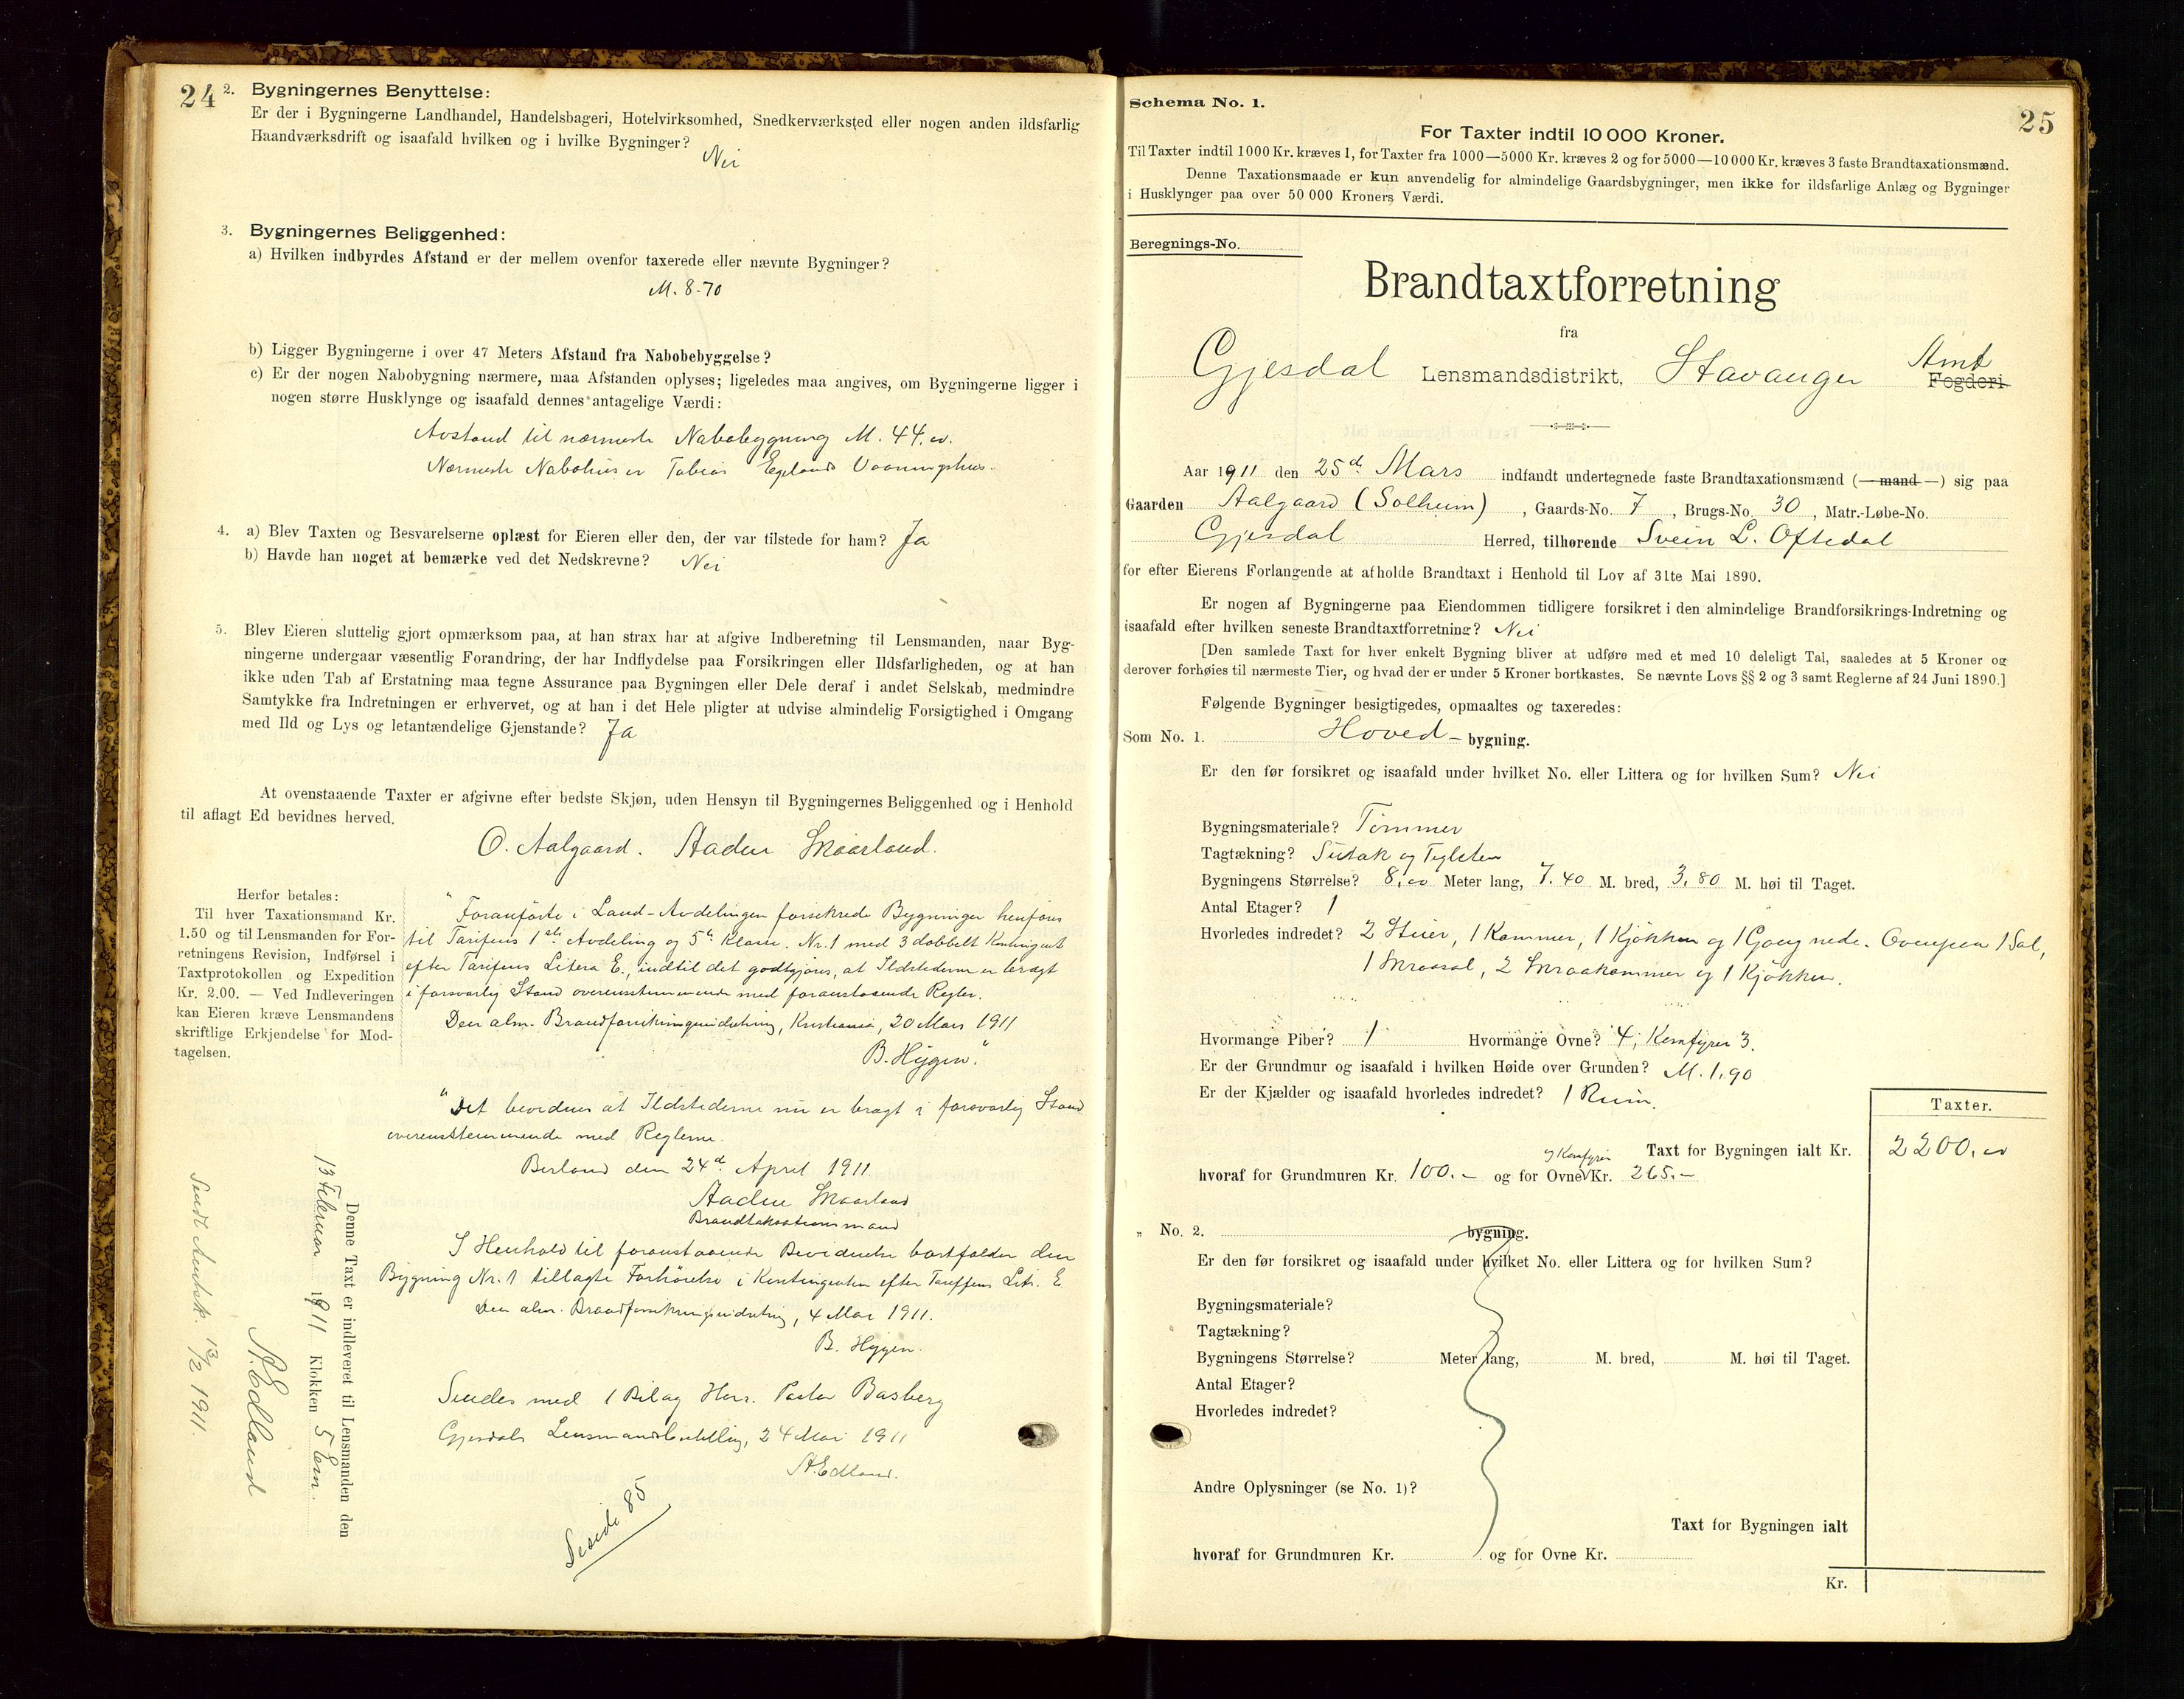 24
2. Bygningernes Benyttelse:
Er der i Bygningerne Landhandel, Handelsbageri, Hotelvirksomhed, Snedkerværksted eller nogen anden ildsfarlig
Haandværksdrift og isaafald hvilken og i hvilke Bygninger?
Nei
3. Bygningernes Beliggenhed:
a) Hvilken indbyrdes Afstand er der mellem ovenfor taxerede eller nævnte Bygninger?
M. 8.70
b) Ligger Bygningerne i over 47 Meters Afstand fra Nabobebyggelse?
c) Er der nogen Nabobygning nærmere, maa Afstanden oplyses; ligeledes maa angives, om Bygningerne ligger i
nogen større Husklynge og isaafald dennes antagelige Værdi:
Avstand til nærmeste Nabobygning M. 44.00.
Nærmeste Nabohus er Tobias Egelands Vaaningshus.
4. a) Blev Taxten og Besvarelserne oplæst for Eieren eller den, der var tilstede for ham? Ja
b) Havde han noget at bemærke ved det Nedskrevne? Nei
5. Blev Eieren sluttelig gjort opmærksom paa, at han strax har at afgive Indberetning til Lensmanden, naar Byg-
ningerne undergaar væsentlig Forandring, der har Indflydelse paa Forsikringen eller Ildsfarligheden, og at han
ikke uden Tab af Erstatning maa tegne Assurance paa Bygningen eller Dele deraf i andet Selskab, medmindre
Samtykke fra Indretningen er erhvervet, og at han i det Hele pligter at udvise almindelig Forsigtighed i Omgang
med Ild og Lys og letantændelige Gjenstande? Ja
At ovenstaaende Taxter er afgivne efter bedste Skjøn, uden Hensyn til Bygningernes Beliggenhed og i Henhold
til aflagt Ed bevidnes herved.
O. Aalgaard. Aadne Skaarland.
Herfor betales:
Til hver Taxationsmand Kr.
1.50 og til Lensmanden for For-
retningens Revision, Indførsel i
Taxtprotokollen og Expedition
Kr. 2.00. — Ved Indleveringen
kan Eieren kræve Lensmandens
skriftlige Erkjendelse for Mod-
tagelsen.
"Foranførte i Land-Avdelingen forsikrede Bygninger henføres
til Tarifens 1ste Avdeling og 5te Klasse. Nr. 1 med 3 dobbelt Kontingent
efter Tarifens Litera E., indtil det godtgjøres, at Ildstederne er bragt
i forsvarlig Stand overensstemmende med foranstaaende Regler.
Den alm. Brandforsikringsindretning, Kristiania, 20 Mars 1911
B. Hygen."
"Det bevidnes at Ildstederne nu er bragt i forsvarlig Stand
overensstemmende med Reglerne.
Berland den 24d April 1911.
Aadne Skaarland
Brandtakstationsmand
I Henhold til foranstaaende Bevidnelse bortfalder den
Bygning Nr. 1 tillagte Forhøielse i Kontingenten efter Tariffens Litr. E
Den alm. Brandforsikringsindretning, 4 Mai 1911.
B. Hygen.
Sendes med 1 Bilag Herr. Pastor Basberg
Gjesdals Lensmandsbestilling, 24 Mai 1911
St. Edland.
Se side 85
Denne Taxt er indleveret til Lensmanden den
13 Februar 1911 Klokken 5 Em.
St. Edland
Sendt Amtsk. 13/2 1911.
25
Schema No. 1.
For Taxter indtil 10 000 Kroner.
Til Taxter indtil 1000 Kr. kræves 1, for Taxter fra 1000—5000 Kr. kræves 2 og for 5000—10 000 Kr. kræves 3 faste Brandtaxationsmænd.
Denne Taxationsmaade er kun anvendelig for almindelige Gaardsbygninger, men ikke for ildsfarlige Anlæg og Bygninger
i Husklynger paa over 50 000 Kroners Værdi.
Beregnings-No.
Brandtaxtforretning
fra
Gjesdal Lensmandsdistrikt, Stavanger Amt Fogderi
Aar 1911 den 25d Mars indfandt undertegnede faste Brandtaxationsmænd (— mand —) sig paa
Gaarden Aalgaard (Solheim), Gaards-No. 7, Brugs-No. 30, Matr.-Løbe-No.
Gjesdal Herred, tilhørende Svein L. Oftedal
for efter Eierens Forlangende at afholde Brandtaxt i Henhold til Lov af 31te Mai 1890.
Er nogen af Bygningerne paa Eiendommen tidligere forsikret i den almindelige Brandforsikrings-Indretning og
isaafald efter hvilken seneste Brandtaxtforretning? Nei
[Den samlede Taxt for hver enkelt Bygning bliver at udføre med et med 10 deleligt Tal, saaledes at 5 Kroner og
derover forhøies til nærmeste Tier, og hvad der er under 5 Kroner bortkastes. Se nævnte Lovs §§ 2 og 3 samt Reglerne af 24 Juni 1890.]
Følgende Bygninger besigtigedes, opmaaltes og taxeredes:
Som No. 1. Hoved- bygning.
Er den før forsikret og isaafald under hvilket No. eller Littera og for hvilken Sum? Nei
Bygningsmateriale? Tømmer
Tagtækning? Sutak og Teglsten
Bygningens Størrelse? 8,00 Meter lang, 7.40 M. bred, 3,80 M. høi til Taget.
Antal Etager? 1
Hvorledes indredet? 2 Stuer, 1 Kammer, 1 Kjøkken og 1 Gang nede. Ovenpaa 1 Sal,
1 Skraasal, 2 Skraakammer og 1 Kjøkken.
Hvormange Piber? 1 Hvormange Ovne? 4, Komfyrer 3.
Er der Grundmur og isaafald i hvilken Høide over Grunden? M. 1,90
Er der Kjælder og isaafald hvorledes indredet? 1 Rum.
Taxter.
Taxt for Bygningen ialt Kr. 2200,00
hvoraf for Grundmuren Kr. 100.- og for Ovne og Komfyrer Kr. 265.-
„ No. 2. bygning.
Er den før forsikret og isaafald under hvilket No. eller Littera og for hvilken Sum?
Bygningsmateriale?
Tagtækning?
Bygningens Størrelse? Meter lang, M. bred, M. høi til Taget.
Antal Etager?
Hvorledes indredet?
Andre Oplysninger (se No. 1)?
Taxt for Bygningen ialt
hvoraf for Grundmuren Kr. og for Ovne Kr.
Kr.